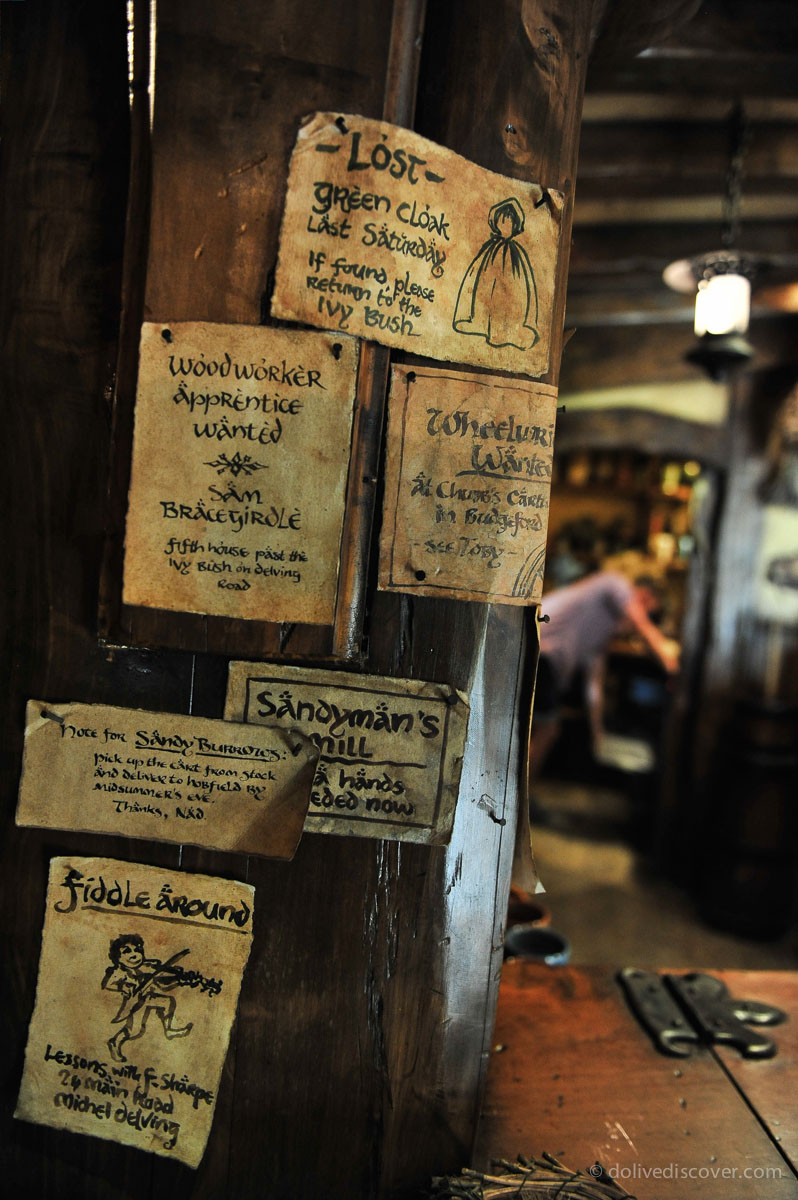 - Lost -
Green cloak
Last Saturday
If found, please
return to the
Ivy Bush
Woodworker
Apprentice
wanted
Sam
Bracegirdle
fifth house past the
Ivy Bush on delving
Road
Wanted
At Chubb's Carts
in Budgeford
- see Toby -
Sandyman's
Mill
hands
needed now
Note for Sandy Burrows:
pick up the cart from stock
and deliver to hobfield by
midsummer's eve.
Thanks, Nad
Fiddle Around
Lessons with F. Sharpe
24 Main Road
Michel delving
© dolivediscover.com